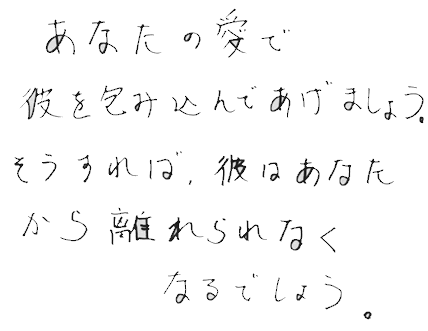 あなたの愛で
彼を包み込んであげましょう。
そうすれば、彼はあなた
から離れられなく
なるでしょう。